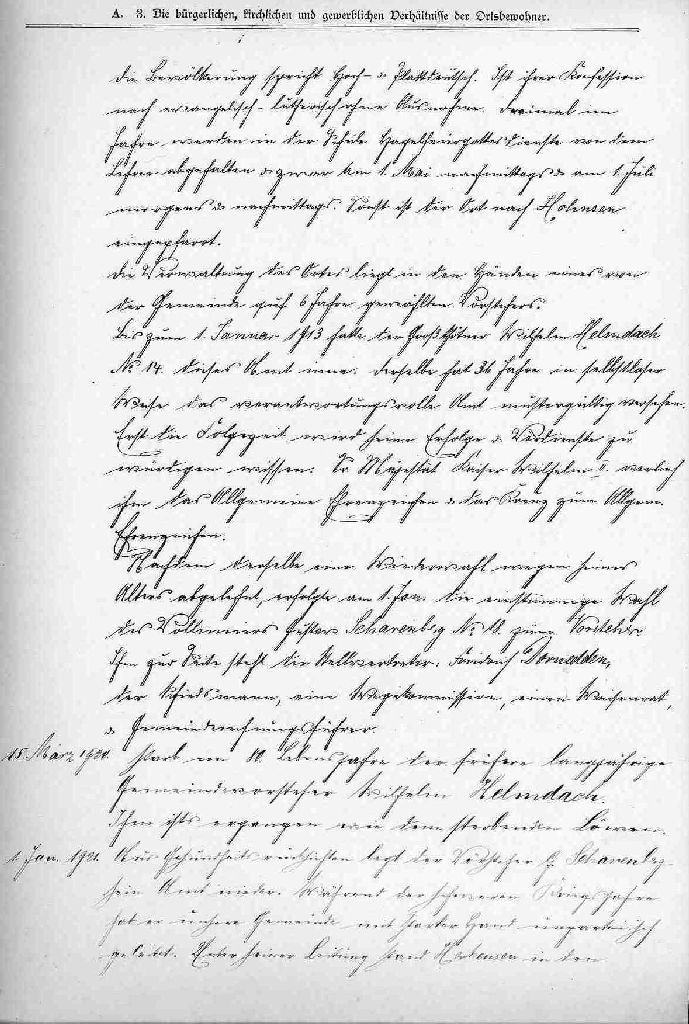 A. 3. Die bürgerlichen, kirchlichen und gewerblichen Verhältnisse der Ortsbewohner.
Die Bevölkerung spricht Hoch- & Plattdeutsch. Ist ihrer Konfession
nach evangelisch-lutherisch ohne Ausnahme. Dreimal im
Jahre werden in der Schule Hagelfeiergottesdienste von dem
Lehrer abgehalten & zwar am 1. Mai nachmittags & am 1. Juli
morgens & nachmittags. Sonst ist der Ort nach Holensen
eingepfarrt.
Die Verwaltung des Ortes liegt in den Händen eines von
der Gemeinde auf 6 Jahre gewählten Vorstehers.
Bis zum 1. Januar 1913 hatte der Großköthner Wilhelm Helmdach
No 14. dieses Amt inne. Derselbe hat 36 Jahre in selbstloser
Weise das verantwortungsvolle Amt mustergültig versehen.
Erst die Folgezeit wird seine Erfolge & Verdienste zu
würdigen wissen. Sr Majestät Kaiser Wilhelm II. verlieh
ihm das Allgemeine Ehrenzeichen & das Kreuz zum Allgem.
Ehrenzeichen.
Nachdem derselbe eine Wiederwahl wegen seines
Alters abgelehnt, erfolgte am 1. Jan. die einstimmige Wahl
des Vollmeiers Gustav Scharenberg No 18. zum Vorsteher
Ihm zur Seite steht der Stellvertreter. Friedrich Dornedden,
der Schiedsmann, eine Wegekommission, einen Waisenrat,
& Gemeinderechnungsführer.
15. März 1920. starb im 80. Lebensjahre der frühere langjährige
Gemeindevorsteher Wilhelm Helmdach.
Ihm ists ergangen wie dem sterbenden Löwen.
1. Jan. 1921. Aus Gesundheitsrücksichten legt der Vorsteher G. Scharenberg
sein Amt nieder. Während der schweren Kriegsjahre
hat er unsere Gemeinde mit starker Hand unparteiisch
geleitet. Unter seiner Leitung stand in den